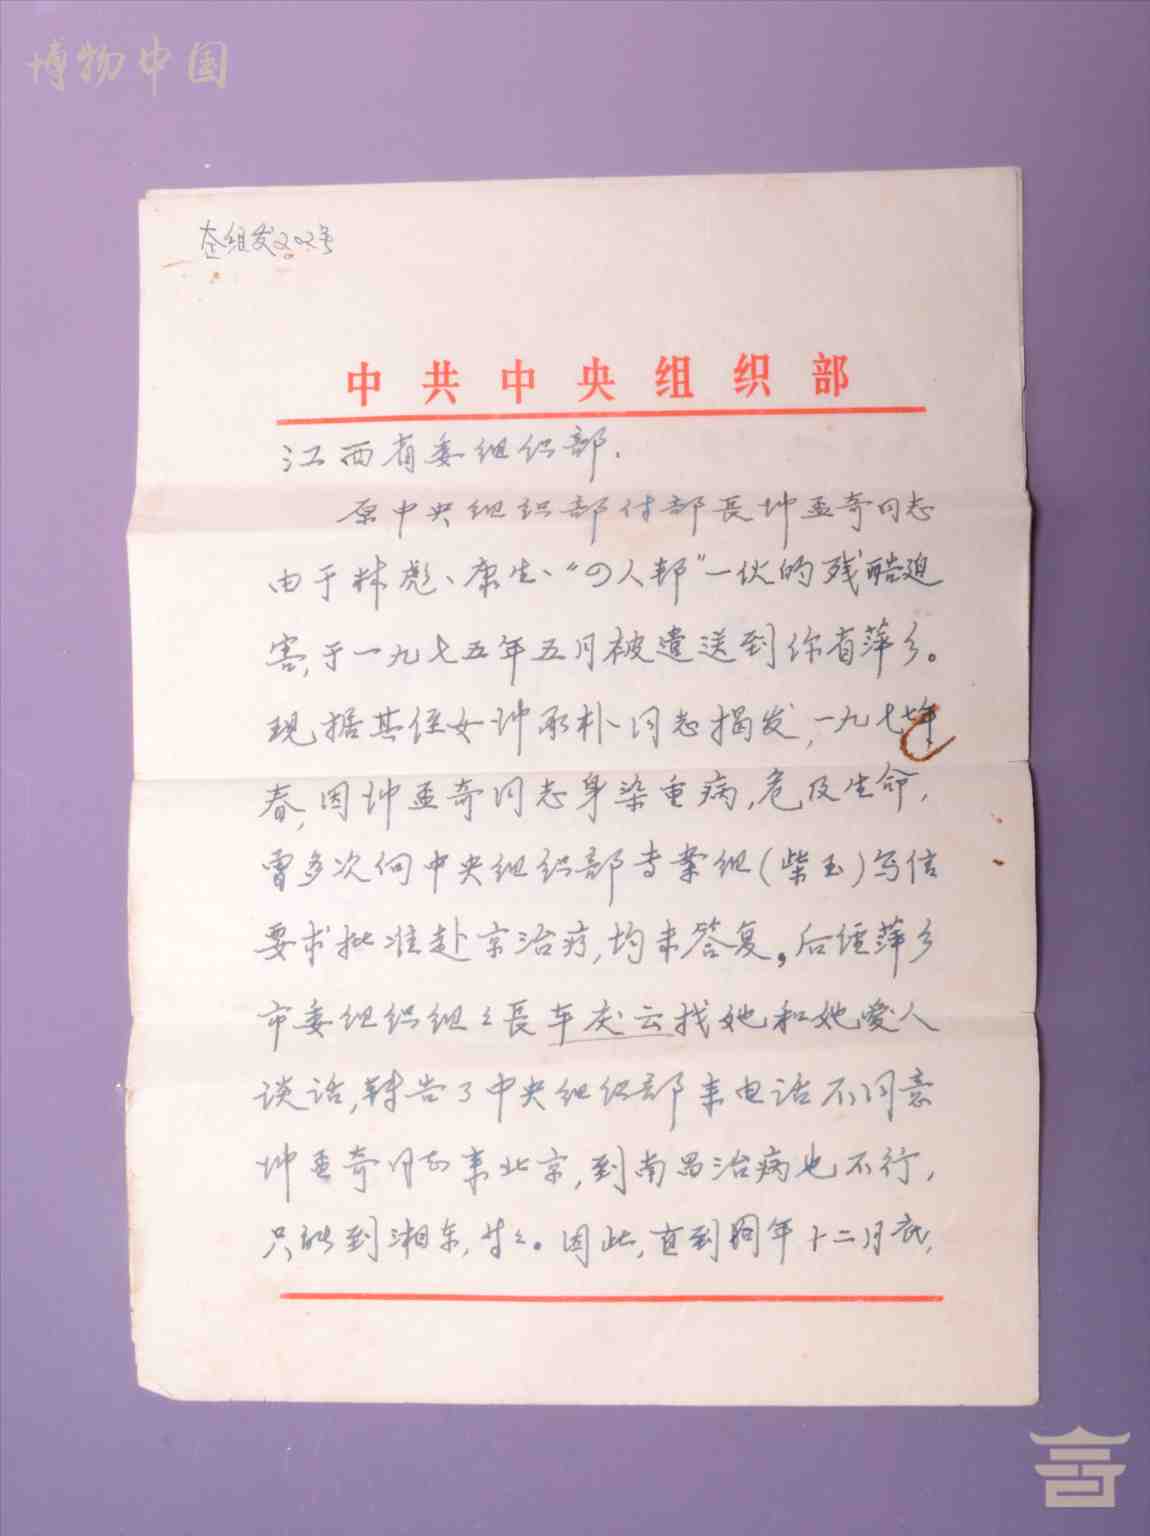 博物中国
组发202号
中共中央组织部
江西省委组织部.
原中央组织部付部長帅孟奇同志
由于林彪、康生、“四人邦”一伙的残酷迫
害,于一九七五年五月被遣送到你省萍乡。
现据其侄女帅承朴同志揭发,一九七七年
春,因帅孟奇同志身染重病,危及生命,
曾多次向中央组织部专案组(柴玉)写信
要求批准赴京治疗,均未答复。后经萍乡
市委组织组〻長车庆云找她和她爱人
谈话,转告了中央组织部来电话不同意
帅孟奇同志来北京,到南昌治病也不行,
只能到湘东,等〻。因此,直到同年十二月底,